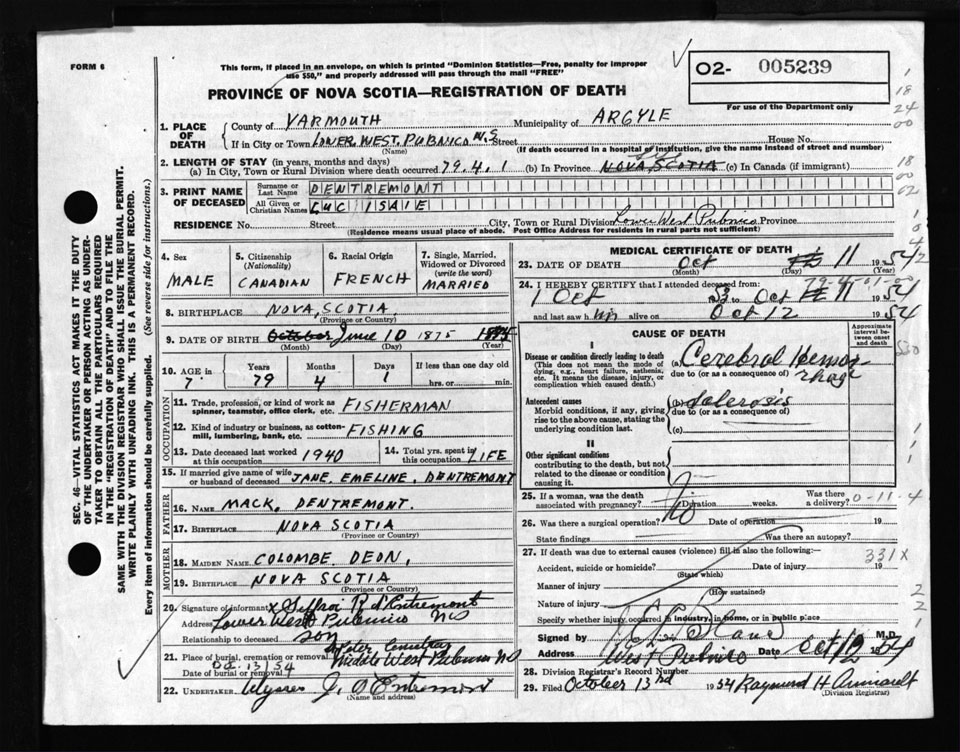 FORM 6
This form, if placed in an envelope, on which is printed "Dominion Statistics—Free, penalty for improper
use $50," and properly addressed will pass through the mail "FREE"
O2- 005239
For use of the Department only
PROVINCE OF NOVA SCOTIA—REGISTRATION OF DEATH
1. PLACE OF DEATH
County of YARMOUTH Municipality of ARGYLE
If in City or Town LOWER WEST PUBNICO N.S Street House No.
(Name) (If death occurred in a hospital or institution, give the name instead of street and number)
2. LENGTH OF STAY (in years, months and days)
(a) In City, Town or Rural Division where death occurred 79.4.1 (b) In Province NOVA SCOTIA (c) In Canada (if immigrant)
3. PRINT NAME OF DECEASED
Surname or Last Name DENTREMONT
All Given or Christian Names LUC ISAIE
RESIDENCE No. Street City, Town or Rural Division Lower West Pubnico Province
(Residence means usual place of abode. Post Office Address for residents in rural parts not sufficient)
4. Sex
MALE
5. Citizenship
(Nationality)
CANADIAN
6. Racial Origin
FRENCH
7. Single, Married, Widowed or Divorced
(write the word)
MARRIED
8. BIRTHPLACE NOVA, SCOTIA
(Province or Country)
9. DATE OF BIRTH October June 10 1875
(Month) (Day) (Year)
10. AGE in Years Months Days If less than one day
79 4 1 hrs. or min.
OCCUPATION
11. Trade, profession, or kind of work as
spinner, teamster, office clerk, etc. FISHERMAN
12. Kind of industry or business, as cotton-
mill, lumbering, bank, etc. FISHING
13. Date deceased last worked
at this occupation 1940
14. Total yrs. spent in
this occupation LIFE
15. If married give name of wife
or husband of deceased JANE, EMELINE, DENTREMONT
FATHER
16. NAME MACK, DENTREMONT.
17. BIRTHPLACE NOVA SCOTIA
(Province or Country)
MOTHER
18. MAIDEN NAME COLOMBE DEON,
19. BIRTHPLACE NOVA SCOTIA
(Province or Country)
20. Signature of informant x R d'Entremont
Address Lower West Pubnico NS
Relationship to deceased son
21. Place of burial, cremation or removal Middle West Pubnico NS
Date of burial or removal Oct 13/54
22. UNDERTAKER Ulysses J. D'Entremont
(Name and address)
MEDICAL CERTIFICATE OF DEATH
23. DATE OF DEATH Oct 11 1954
(Month) (Day) (Year)
24. I HEREBY CERTIFY that I attended deceased from:
1 Oct 53 to Oct 11 1954
and last saw him alive on Oct 12 1954
CAUSE OF DEATH
Approximate interval between onset and death
I
Disease or condition directly leading to death
(This does not mean the mode of
dying, e.g., heart failure, asthenia,
etc. It means the disease, injury, or
complication which caused death.)
(a) Cerebral Hemorrhage
due to (or as a consequence of)
Antecedent causes
Morbid conditions, if any, giving
rise to the above cause, stating the
underlying condition last.
(b) Sclerosis
due to (or as a consequence of)
(c)
II
Other significant conditions
contributing to the death, but not
related to the disease or condition
causing it.
25. If a woman, was the death
associated with pregnancy? No Duration weeks. Was there a delivery? 0-11-4
26. Was there a surgical operation? Date of operation 19
State findings Was there an autopsy?
27. If death was due to external causes (violence) fill in also the following:— 331X
Accident, suicide or homicide? Date of injury 19
(State which)
Manner of injury
(How sustained)
Nature of injury
Specify whether injury occurred in industry, in home, or in public place
Signed by M.D.
Address West Pubnico Date Oct 12 1954
28. Division Registrar's Record Number
29. Filed October 13rd 1954 Raymond H Amirault
(Division Registrar)
SEC. 46—VITAL STATISTICS ACT MAKES IT THE DUTY
OF THE UNDERTAKER OR PERSON ACTING AS UNDER-
TAKER TO OBTAIN ALL THE PARTICULARS REQUIRED
IN THE "REGISTRATION OF DEATH" AND TO FILE THE
SAME WITH THE DIVISION REGISTRAR WHO SHALL ISSUE THE BURIAL PERMIT.
WRITE PLAINLY WITH UNFADING INK. THIS IS A PERMANENT RECORD.
Every item of information should be carefully supplied. (See reverse side for instructions.)